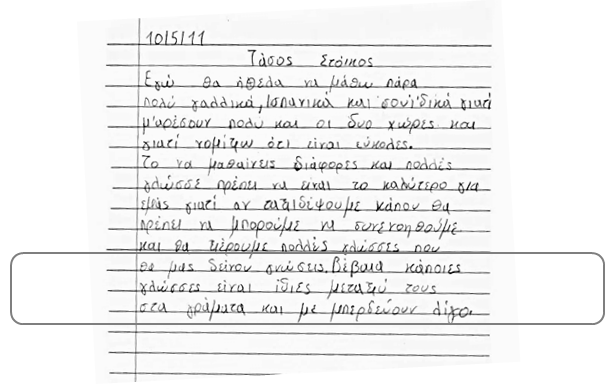 10/5/11
Τάσος Στόικος
Εγώ θα ήθελα να μάθω πάρα
πολύ γαλλικά, Ισπανικά και σουιδικά γιατί
μ'αρέσουν πολυ και οι δυο χώρες και
γιατί νομίζω ότι είναι εύκολες.
Το να μαθαίνεις διάφορες και πολλές
γλώσσε πρέπει να είναι το καλύτερο για
εμάς γιατί αν ταξιδέψουμε κάπου θα
πρέπει να μπορούμε να συνενοηθούμε
και θα ξέρουμε πολλές γλώσσες που
θα μας δείνου γνώσεις. Βέβαια κάποιες
γλώσσες είναι ίδιες μεταξύ τους
στα γράματα και με μπερδεύουν λίγο.